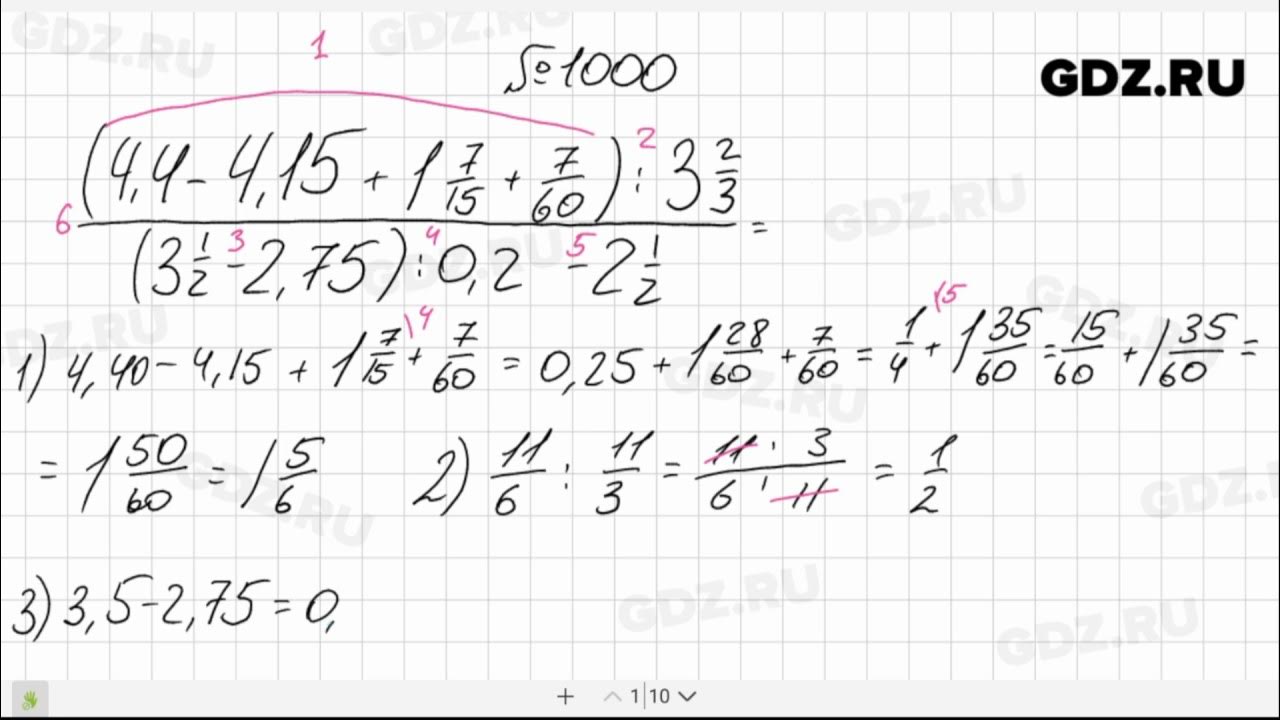 №1000
GDZ.RU
1
(4,4 - 4,15 + 1 7/15 + 7/60) : 3 2/3
2
6
=
(3 1/2 - 2,75) : 0,2 - 2 1/2
3 4 5
1) 4,40 - 4,15 + 1 7/15 \4 + 7/60 = 0,25 + 1 28/60 + 7/60 = 1/4 \15 + 1 35/60 = 15/60 + 1 35/60 =
= 1 50/60 = 1 5/6 2) 11/6 : 11/3 = 11 · 3 / 6 · 11 = 1/2
3) 3,5 - 2,75 = 0,
+ 1 | 10